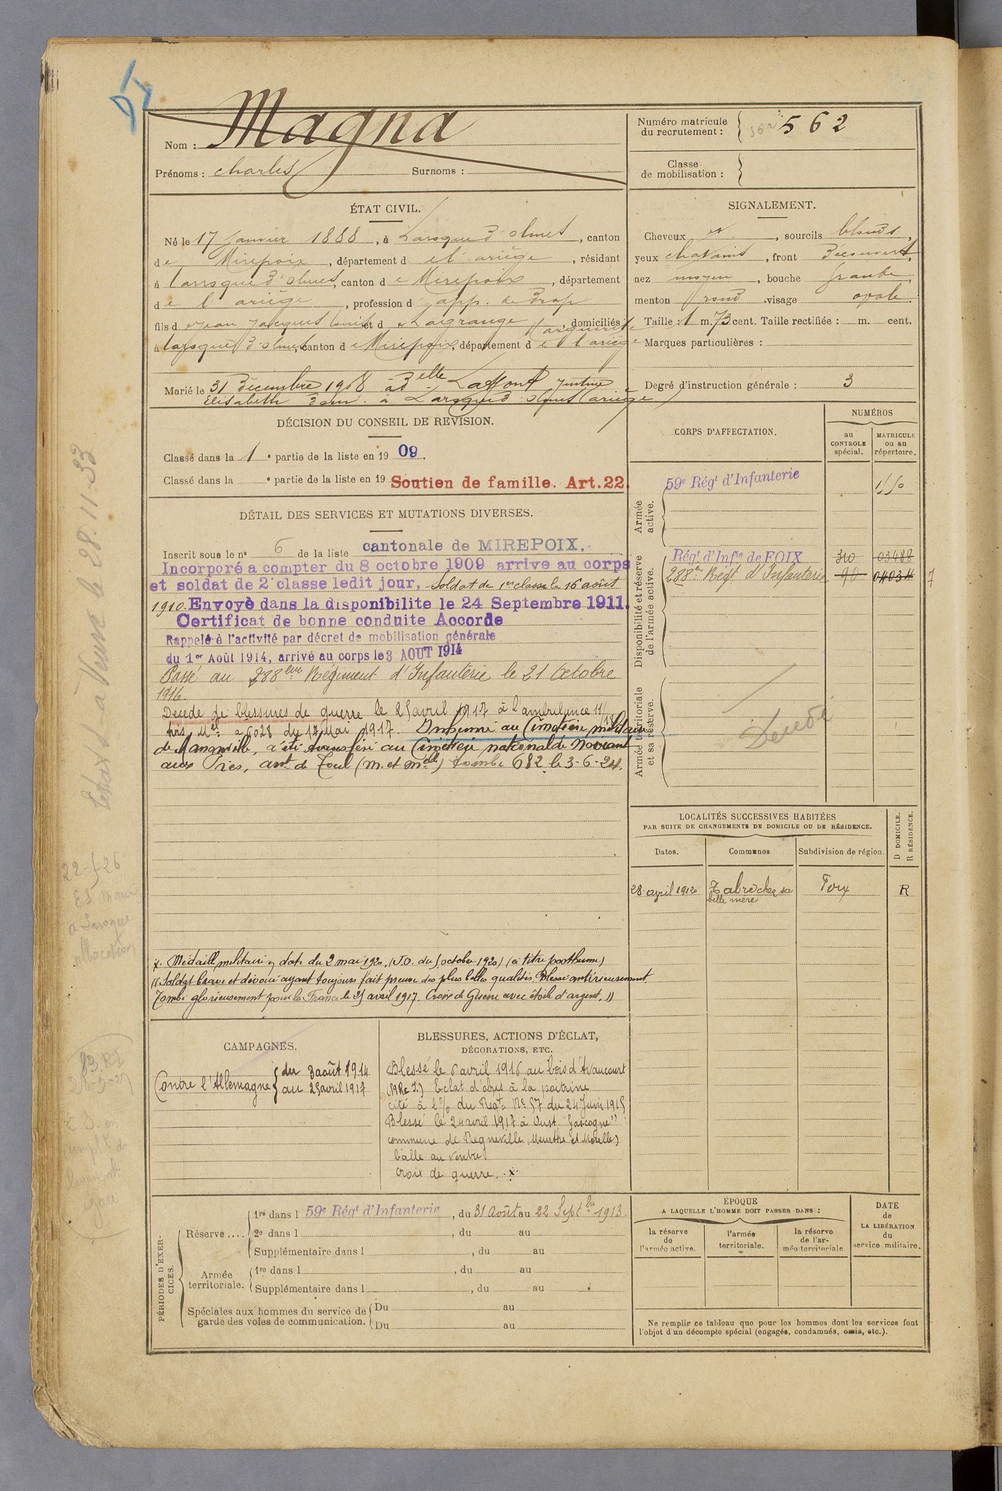 Nom : Magna
Prénoms : Charles Surnoms :
Numéro matricule
du recrutement : 562
Classe
de mobilisation :
ÉTAT CIVIL.
Né le 17 Janvier 1888, à Laroque d'olmes, canton
de Mirepoix, département de l'ariège, résidant
à Laroque d'olmes, canton de Mirepoix, département
de l'ariège, profession d app. de drap
fils de Jean Jacques Louis et de Laigrange Marguerite, domiciliés
à Laroque d'olmes, canton de Mirepoix, département de l'ariège
Marié le 31 Décembre 1908 à Delle Laffont Justine
Elisabeth dom. à Laroque d'olmes (ariège)
SIGNALEMENT.
Cheveux et, sourcils blonds,
yeux chatains, front découvert,
nez moyen, bouche grande,
menton rond visage ovale.
Taille : 1 m. 73 cent. Taille rectifiée : m. cent.
Marques particulières :
Degré d'instruction générale : 3
DÉCISION DU CONSEIL DE REVISION.
Classé dans la 1e partie de la liste en 1909.
Classé dans la e partie de la liste en 19 Soutien de famille. Art.22.
DÉTAIL DES SERVICES ET MUTATIONS DIVERSES.
Inscrit sous le no 6 de la liste cantonale de MIREPOIX.
Incorporé a compter du 8 octobre 1909 arrive au corps
et soldat de 2e classe ledit jour, Soldat de 1re classe le 16 août
1910. Envoyè dans la disponibilite le 24 Septembre 1911.
Certificat de bonne conduite Accorde
Rappelé à l'activité par décret de mobilisation générale
du 1er Août 1914, arrivé au corps le 3 AOUT 1914
Passé au 288ème Régiment d'Infanterie le 21 Octobre
1916.
Décédé de blessures de guerre le 25 avril 1917 à l'ambulance 11/
avis Mel 6028 du 12 Mai 1917. Inhumé au Cimetière militaire
de Manonville, a été transféré au Cimetière national de Noviant
aux Près, arrt de Toul (M. et Mlle) tombe 682 le 3-6-24.
x. Médaille militaire, à dater du 2 mai 1920, (J.O. du octobre 1920) (à titre posthume)
"Soldat brave et dévoué ayant toujours fait preuve des plus belles qualités. Blessé antérieurement
Tombé glorieusement pour la France le 25 avril 1917. Croix de Guerre avec étoile d'argent."
CORPS D'AFFECTATION.
NUMÉROS
au
CONTROLE
spécial.
MATRICULE
ou au
répertoire.
Armée
active.
59e Régt d'Infanterie
Disponibilité et réserve
de l'armée active.
Régt d'Infie de FOIX 310 03488
288e Régt d'Infanterie 04034
Armée territoriale
et sa réserve.
Décédé
LOCALITÉS SUCCESSIVES HABITÉES
PAR SUITE DE CHANGEMENTS DE DOMICILE OU DE RÉSIDENCE.
Dates. Communes Subdivision de région. D DOMICILE. R RÉSIDENCE.
28 avril 1912 Tabre chez sa Foix R
belle mère
CAMPAGNES.
Contre l'Allemagne
du 3 août 1914
au 25 avril 1917
BLESSURES, ACTIONS D'ÉCLAT,
DÉCORATIONS, ETC.
Blessé le 6 avril 1916 au bois d'Avaucourt
Eclat d'obus à la poitrine
cité à l'o/ du Régt No 57 du 24 Juin 1915
Blessé le 24 avril 1917 à Ouest "Gascogne"
commune de Regneville (Meurthe et Moselle)
balle au ventre
croix de guerre. x
PÉRIODES D'EXER-
CICES.
Réserve ....
1re dans l 59e Régt d'Infanterie, du 31 août au 22 Septbre 1913.
2e dans l , du au
Supplémentaire dans l , du au
Armée
territoriale.
1re dans l , du au
Supplémentaire dans l , du au
Spéciales aux hommes du service de
garde des voies de communication.
Du au
Du au
ÉPOQUE
A LAQUELLE L'HOMME DOIT PASSER DANS :
la réserve
de
l'armée active.
l'armée
territoriale.
la réserve
de l'ar-
mée territoriale
DATE
de
LA LIBÉRATION
du
service militaire.
Ne remplir ce tableau que pour les hommes dont les services font
l'objet d'un décompte spécial (engagés, condamnés, omis, etc.).